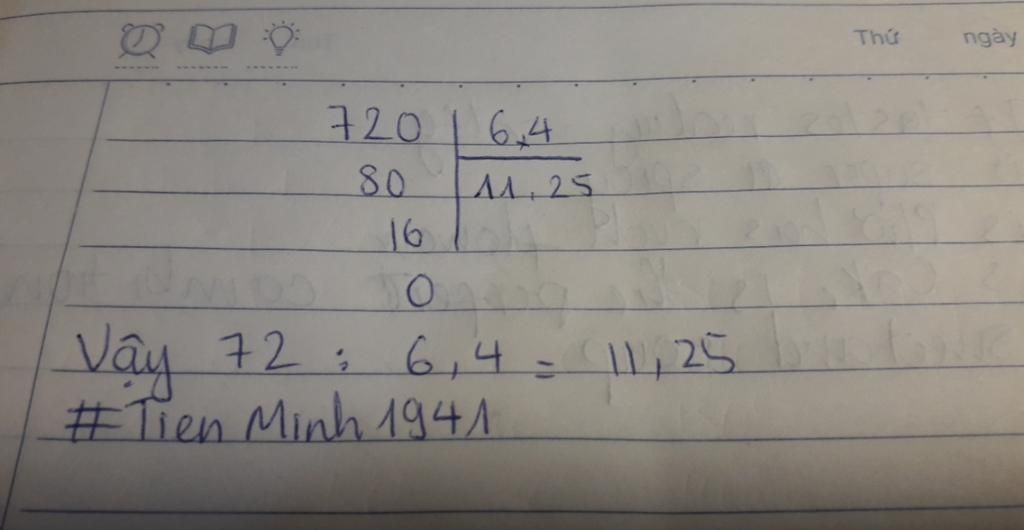 Thứ ngày
720 6,4
80 11,25
16
0
Vậy 72 : 6,4 = 11,25
#Tien Minh 1941